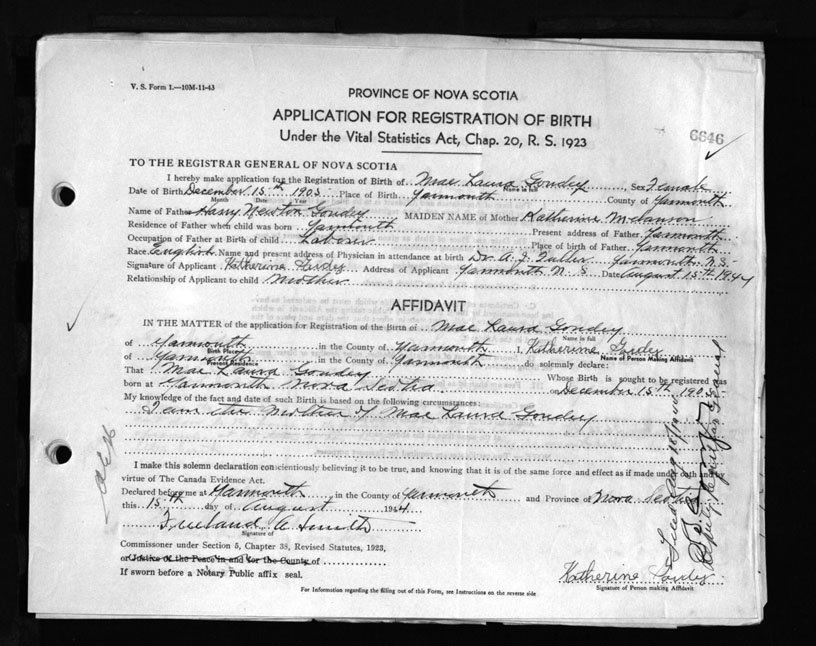 V. S. Form 1.—10M-11-43
PROVINCE OF NOVA SCOTIA
APPLICATION FOR REGISTRATION OF BIRTH
Under the Vital Statistics Act, Chap. 20, R. S. 1923
6646
TO THE REGISTRAR GENERAL OF NOVA SCOTIA
I hereby make application for the Registration of Birth of Mae Laura Goudey Sex Female
Name in full
Date of Birth December 15th 1903 Place of Birth Yarmouth County of Yarmouth
Month Date Year
Name of Father Harry Newton Goudey MAIDEN NAME of Mother Katherine Melanson
Residence of Father when child was born Yarmouth Present address of Father Yarmouth
Occupation of Father at Birth of child Laborer Place of birth of Father Yarmouth
Race English Name and present address of Physician in attendance at birth Dr. A. J. Fuller Yarmouth N.S.
Signature of Applicant Katherine Goudey Address of Applicant Yarmouth N. S. Date August 15th 1944
Relationship of Applicant to child Mother
AFFIDAVIT
IN THE MATTER of the application for Registration of the Birth of Mae Laura Goudey
Name in full
of Yarmouth in the County of Yarmouth I, Katherine Goudey
Birth Place Name of Person Making Affidavit
of Yarmouth in the County of Yarmouth do solemnly declare:
Present Residence
That Mae Laura Goudey Whose Birth is sought to be registered was
born at Yarmouth Nova Scotia on December 15th 1903
My knowledge of the fact and date of such Birth is based on the following circumstances:
I am the Mother of Mae Laura Goudey
I make this solemn declaration conscientiously believing it to be true, and knowing that it is of the same force and effect as if made under oath and by
virtue of The Canada Evidence Act.
Declared before me at Yarmouth in the County of Yarmouth and Province of Nova Scotia
this 15th day of August 1944
Freeland A Smith
Signature of
Commissioner under Section 5, Chapter 38, Revised Statutes, 1923,
or Justice of the Peace in and for the County of
If sworn before a Notary Public affix seal.
Katherine Goudey
Signature of Person making Affidavit
For Information regarding the filling out of this Form, see Instructions on the reverse side
Deputy Registrar General